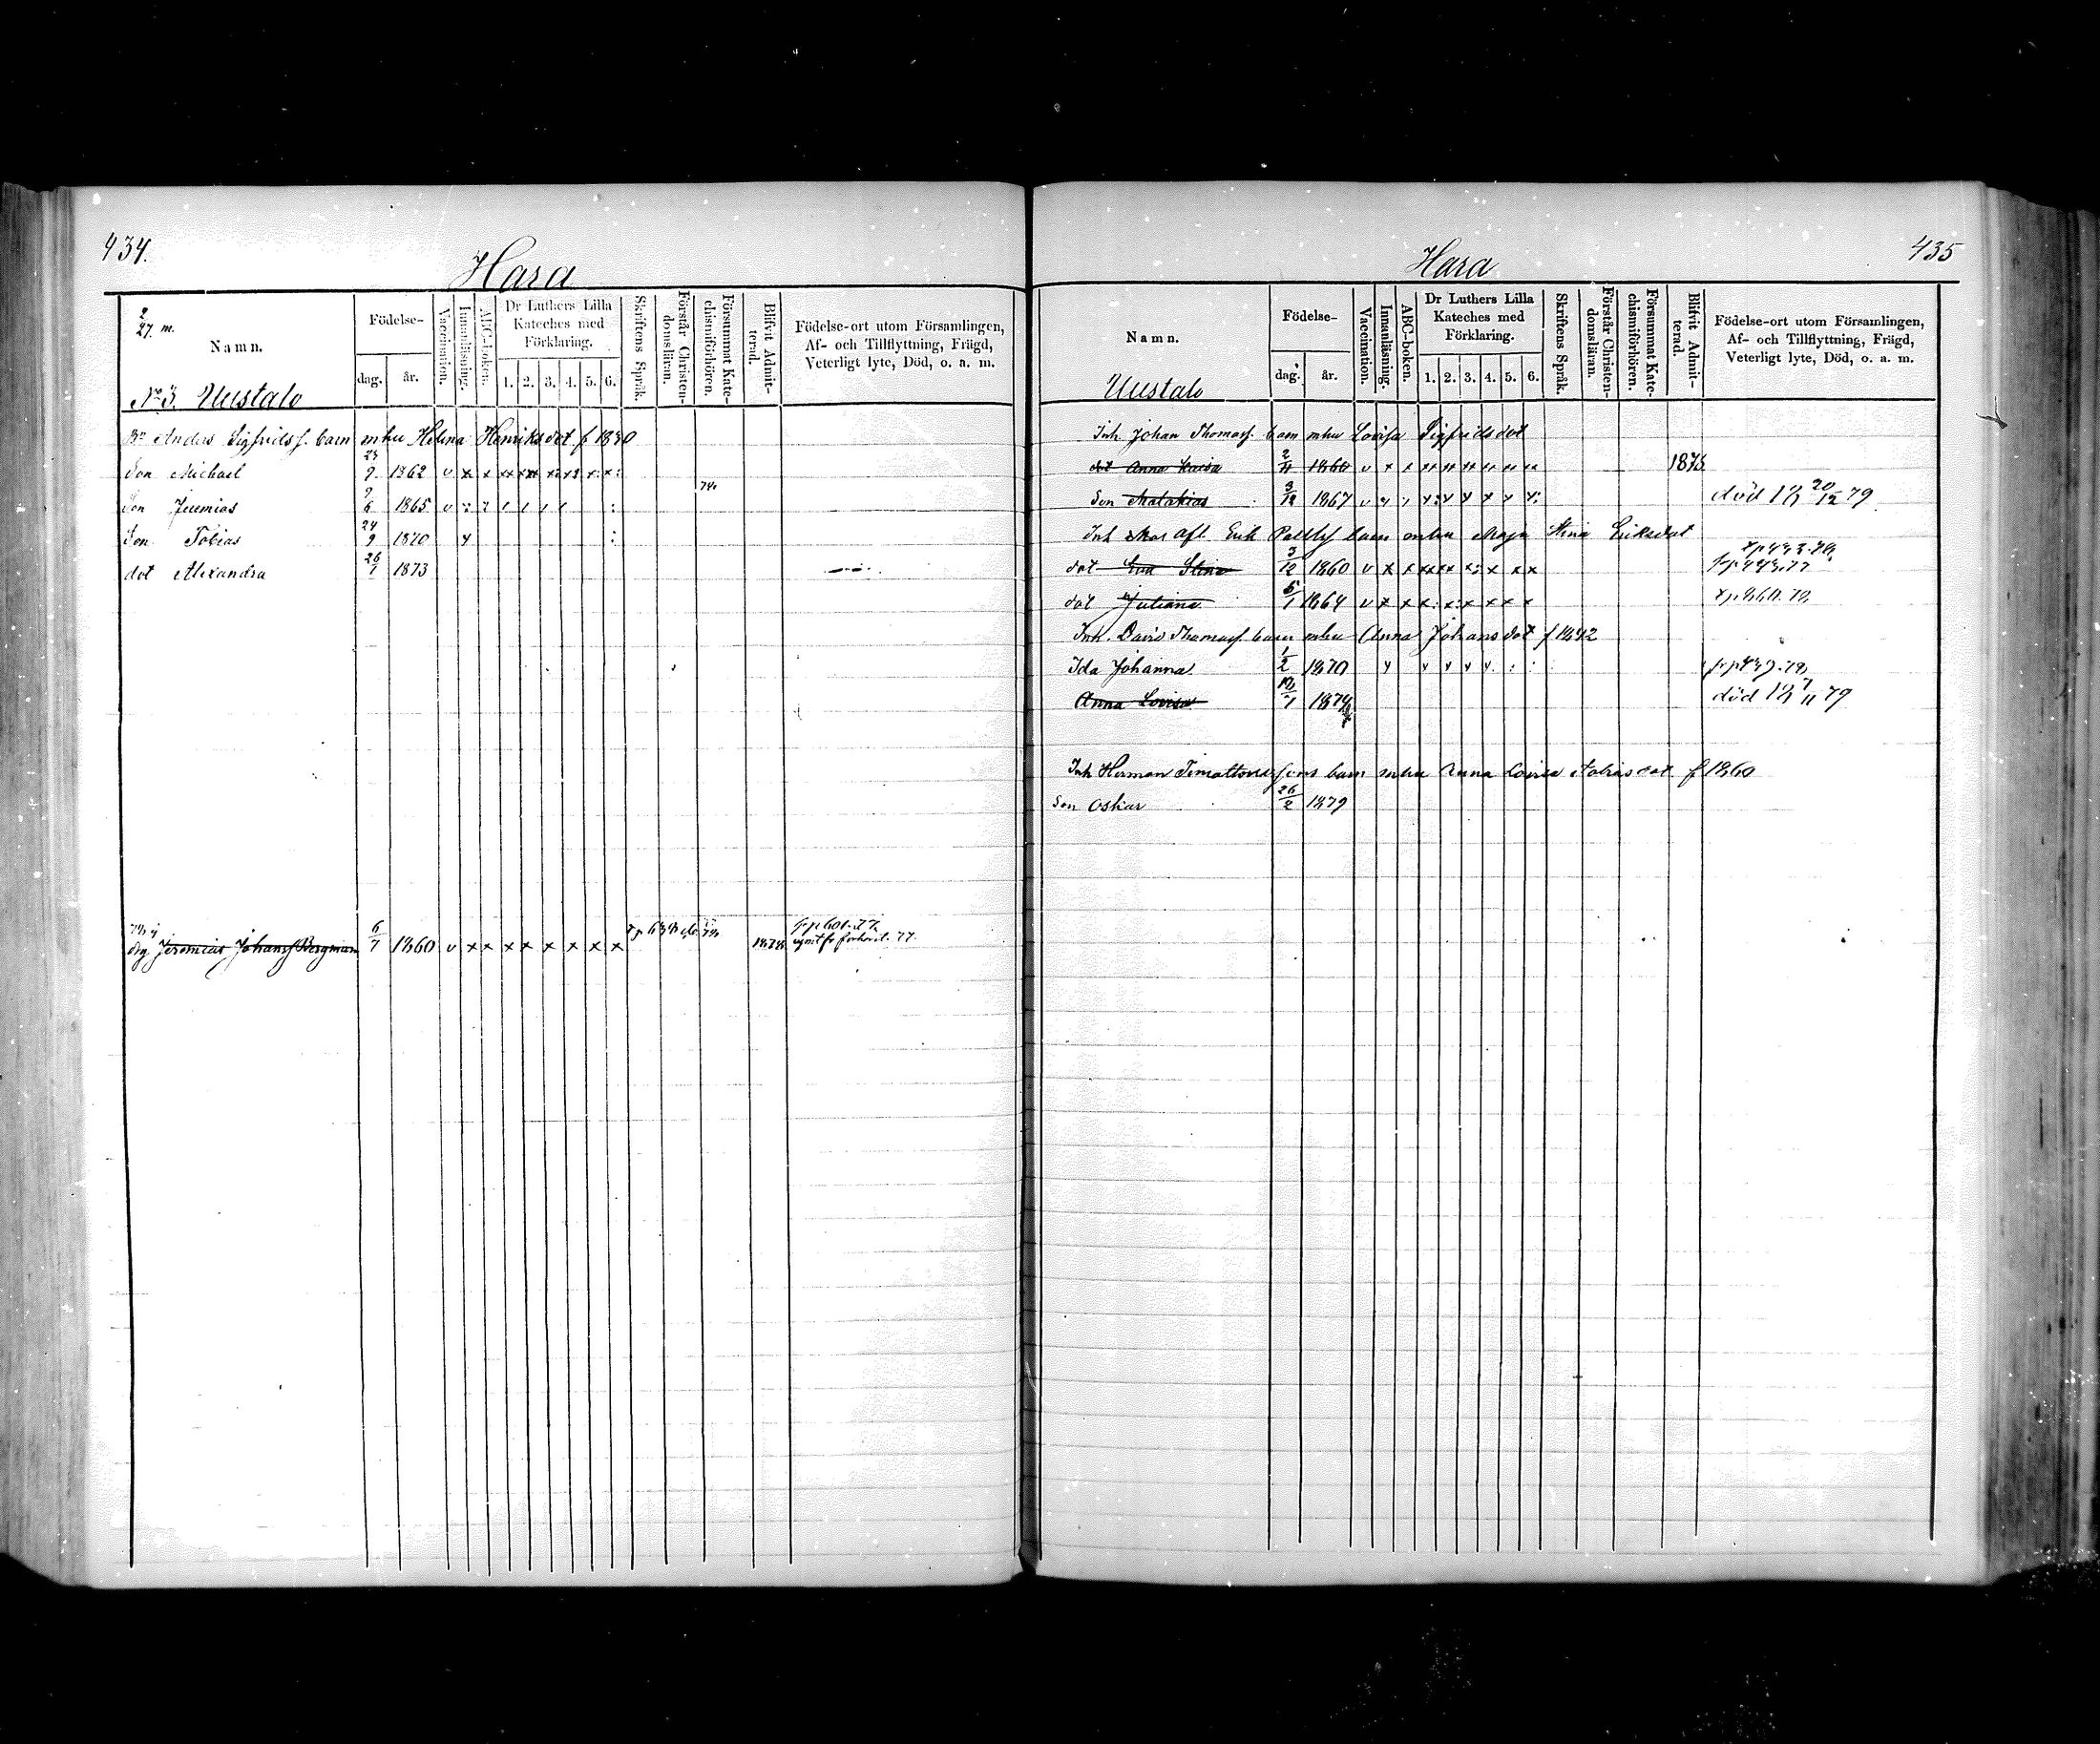 434.
Hara
2/27 m.
Namn.
Födelse-
dag.
år.
Vaccination.
Innanläsning.
ABC-boken.
Dr Luthers Lilla
Kateches med
Förklaring.
1. 2. 3. 4. 5. 6.
Skriftens Språk.
Förstår Christen-
domsläran.
Försummat Kate-
chismiförhören.
Blifvit Admit-
terad.
Födelse-ort utom Församlingen,
Af- och Tillflyttning, Frägd,
Veterligt lyte, Död, o. a. m.
No 3. Uustalo
Bn Anders Sigfridss. barn mhu Helena Henriksdot f 1830
Son Michael 23/9 1862 v x x xx xx x: x: x: x:
Son Jeremias 9/6 1865 v 78
Son Tobias 24/9 1870 x :
dot Alexandra 26/1 1873
drg Jeremias Johanss Bergman 6/7 1860 v x x x x x x x x 1878 fr p 601. 77.
435
Hara
Namn.
Födelse-
dag.
år.
Vaccination.
Innanläsning.
ABC-boken.
Dr Luthers Lilla
Kateches med
Förklaring.
1. 2. 3. 4. 5. 6.
Skriftens Språk.
Förstår Christen-
domsläran.
Försummat Kate-
chismiförhören.
Blifvit Admit-
terad.
Födelse-ort utom Församlingen,
Af- och Tillflyttning, Frägd,
Veterligt lyte, Död, o. a. m.
Uustalo
Inh Johan Thomass. barn mhu Lovisa Sigfridsdot
dot Anna Kaisa 2/11 1860 v x
Son Malakias 3/12 1867 v död 18 20/12 79
Inh afl Erik barn mhu Maja Stina Eriksdot
dot Eva Stina 3/12 1860 v x x xx xx x: x x x fr p 443. 77
dot Juliana 6/1 1864 v x x x: x: x x x x
Inh. David Thomass. barn mhu Anna Johansdot f 1842
Ida Johanna 1/2 1870
Anna Lovisa 1874 död 18 7/11 79
Inh Herman barn mhu Anna Lovisa Tobiasdot f 1860
Son Oskar 26/2 1879